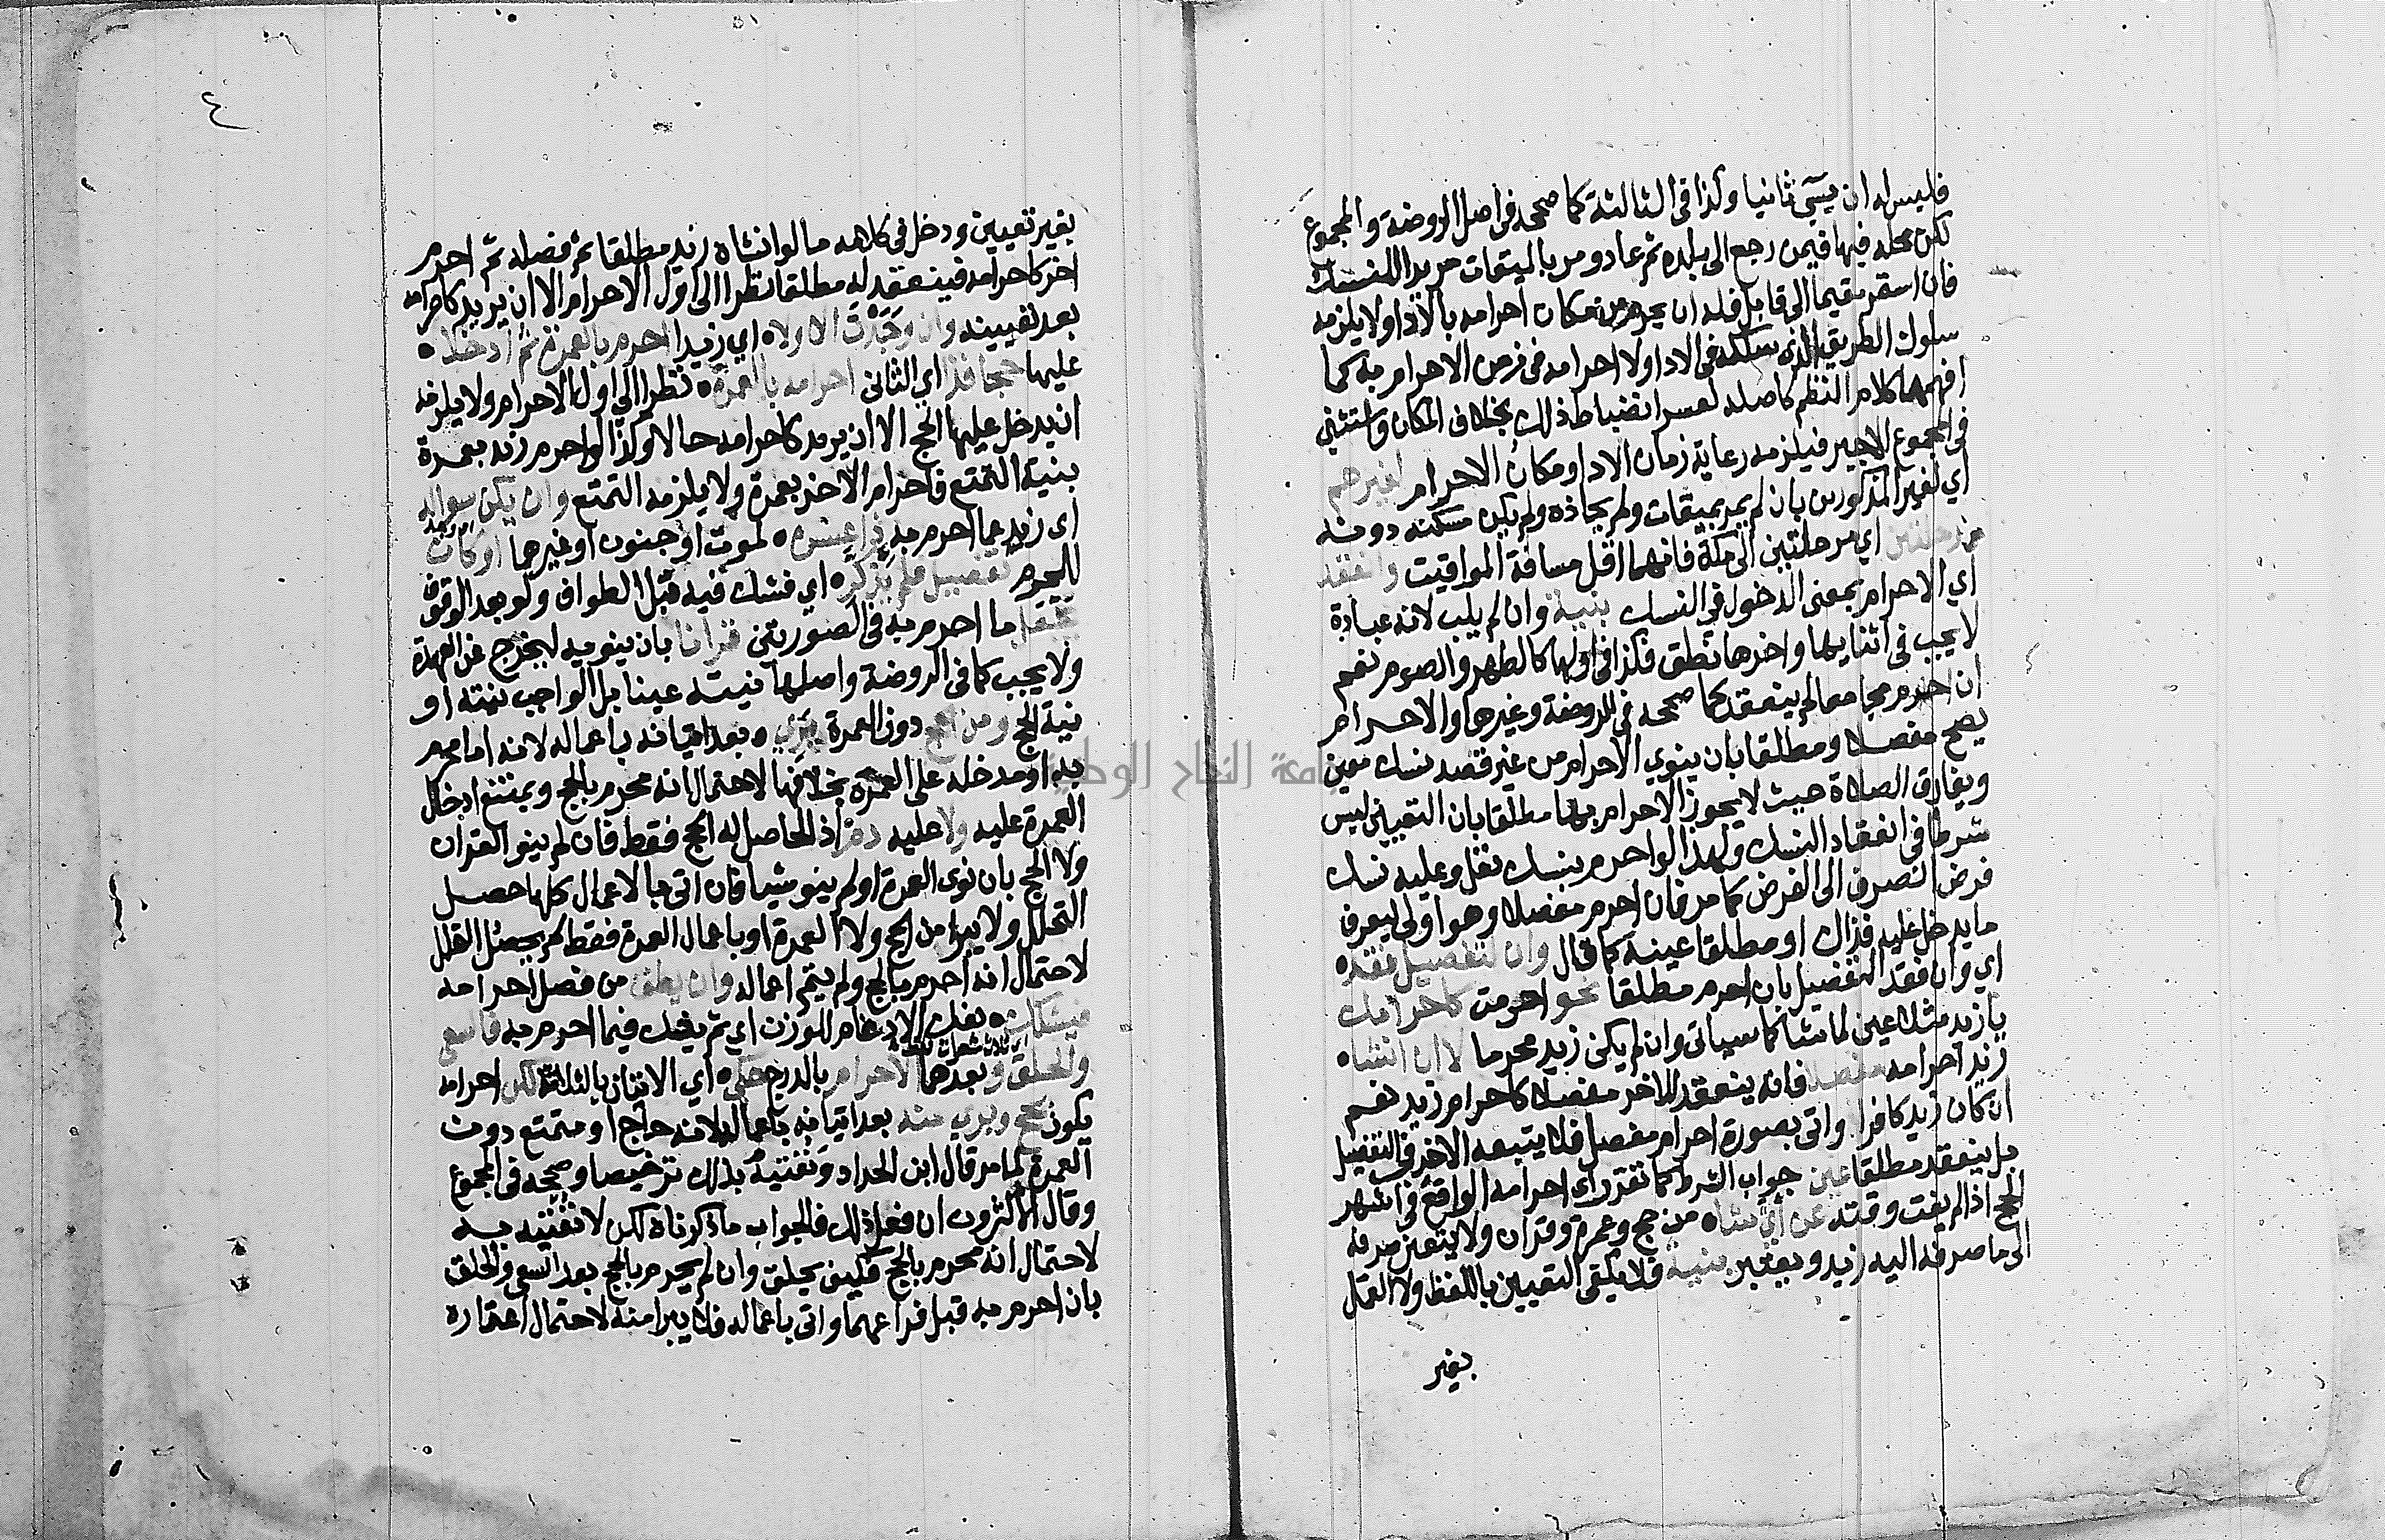 فليس له ان يسيء ثانيا وكذا في الثالثة كما صححه في اصل الروضة والمجموع
لكن محله فيها فيمن رجع الى بلده ثم عاد ومر بالميقات مريدا للنسك
فان استمر مقيما الى قابل فله ان يحرم من مكان احرامه بالاداء ولا يلزمه
سلوك الطريق الذي سلكه في الاداء ولا احرامه في زمن الاحرام به كما
افهمهما كلام النظم كاصله لعسر انضباط ذلك بخلاف المكان واستثنى
في المجموع الاجير فيلزمه رعاية زمان الاداء ومكان الاحرام لغيرهم
اي لغير المذكورين بان لم يمر بميقات ولم يحاذه ولم يكن مسكنه دونه
من رحلتين اي مرحلتين الى مكة فانهما اقل مسافة المواقيت وانعقد
اي الاحرام بمعنى الدخول في النسك بنية وان لم يلب لانه عبادة
لا يجب في اثنايها واخرها نطق فكذا في اولها كالطهر والصوم نعم
ان احرم مجامعا لم ينعقد كما صححه في الروضة وغيرها والاحرام
يصح مفصلا ومطلقا بان ينوي الاحرام من غير قصد نسك معين
ويفارق الصلاة حيث لا يجوز الاحرام بها مطلقا بان التعيين ليس
شرطا في انعقاد النسك ولهذا لو احرم بنسك نفل وعليه نسك
فرض انصرف الى الفرض كما مر فان احرم مفصلا وهو اولى ليعرف
ما يدخل عليه فذاك او مطلقا عينه كما قال وان لتفصيل فقده
اي وان فقد التفصيل بان احرم مطلقا نحو احرمت كاحرامك
يا زيد مثلا عين لما شا كما سياتي وان لم يكن زيد محرما لا ان انشاه
زيد احرامه مفصلا فانه ينعقد للاخر مفصلا كاحرام زيد نعم
ان كان زيد كافرا واتى بصورة احرام مفصل فلا يتبعه الاخر في التفصيل
بل ينعقد مطلقا عين جواب الشرط كما تقرر اي احرامه الواقع في اشهر
الحج اذا لم يفت وقته عن اي شاه من حج وعمرة وقران ولا يتعين صرفه
الى ما صرفه اليه زيد ويعتبر بنية فلا يكفي التعيين باللفظ ولا العمل
بغير
٤
بغير تعيين ودخل في كلامه ما لو انشاه زيد مطلقا ثم فصله ثم احرم
اخر كاحرامه فينعقد له مطلقا نظرا الى اول الاحرام الا ان يريد كاحرامه
بعد تعيينه وان وجدت الاولاه اي زيدا احرم بالعمرة ثم ادخلا
عليها حجا فذا اي الثاني احرامه بالعمرة نظرا الى اول الاحرام ولا يلزمه
ان يدخل عليها الحج الا ان يريد كاحرامه حالا وكذا لو احرم زيد بعمرة
بنية التمتع فاحرام الاخر بعمرة ولا يلزمه التمتع وان يكن سواله
اي زيد عما احرم به ذا عسره لموت او جنون او غيرهما او كان
للمحرم تفصيل فلم يذكره اي فشك فيه قبل الطواف ولو بعد الوقوف
ما احرم به في الصورتين قرانا بان ينويه ليخرج عن العهدة
ولا يجب كما في الروضة واصلها نيته عينا بل الواجب نيته او
نية الحج ومن الحج دون العمرة بري بعد اتيانه باعماله لانه اما محرم
به او مدخله على العمرة بخلافها لاحتمال انه محرم بالحج ويمتنع ادخال
العمرة عليه ولا عليه دم اذ الحاصل له الحج فقط فان لم ينو القران
ولا الحج بان نوى العمرة او لم ينو شيا فان اتى بالاعمال كلها حصل
التحلل ولا يبرا من الحج ولا العمرة او باعمال العمرة فقط لم يحصل التحلل
لاحتمال انه احرم بالحج ولم يتم اعماله وان يطف من فصل احرامه
فيشكك بفك الادغام للوزن اي ثم يشك فيما احرم به فالسعي
والحلق وبعدهما الاحرام بالدرج حكى اي الاتيان بالثلاثة لكن احرامه
يكون بحج وبري منه بعد اتيانه باعماله لانه حاج او متمتع دون
العمرة لما مر قال ابن الحداد ونفتيه بذلك ترخيصا وصححه في المجموع
وقال الاكثرون ان فعل ذلك فالجواب ما ذكرناه لكن لا نفتيه به
لاحتمال انه محرم بالحج فكيف يحلق وان لم يحرم بالحج بعد السعي والحلق
بان احرم به قبل فراغهما واتى باعماله فلا يبرا منه لاحتمال اعتماره
جامعة النجاح الوطنية